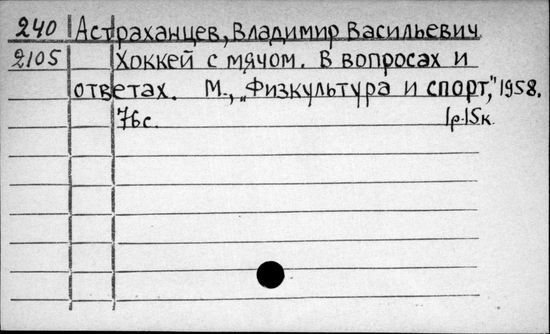 240 Астраханцев, Владимир Васильевич
2105 Хоккей с мячом. В вопросах и
ответах. М., „Физкультура и спорт," 1958.
76с. 1р.15к.